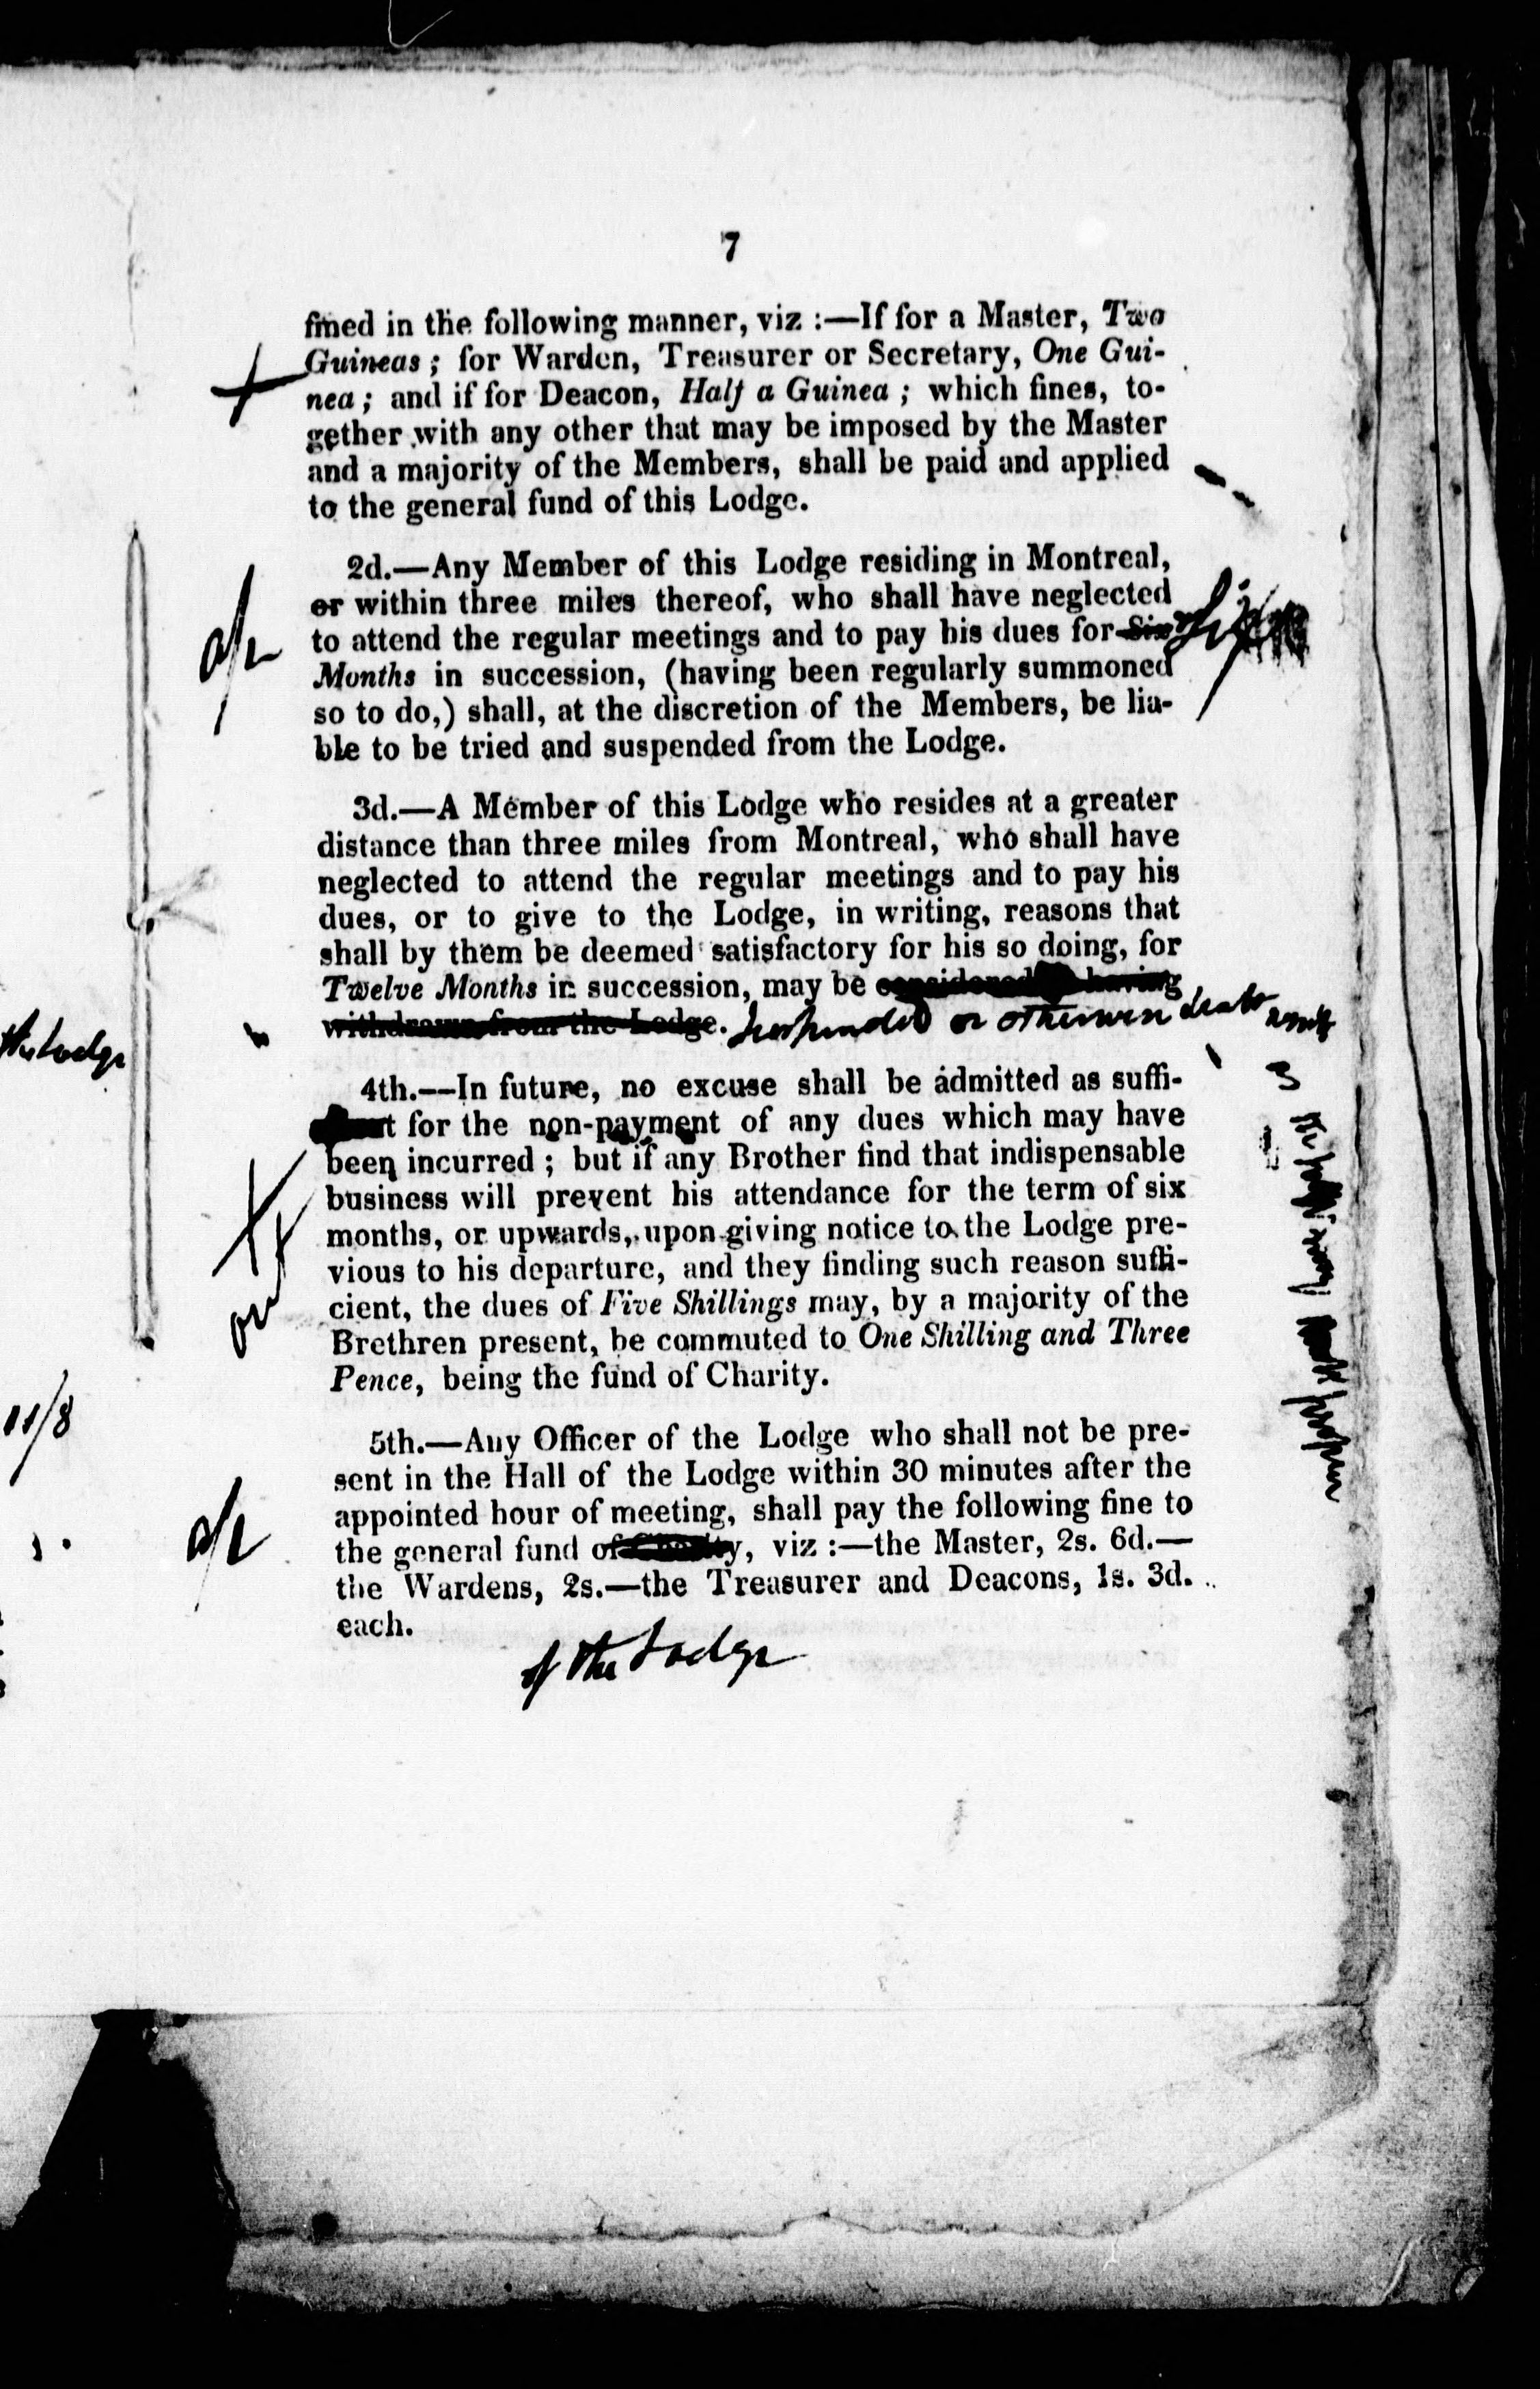 7
fined in the following manner, viz :—If for a Master, Two
Guineas ; for Warden, Treasurer or Secretary, One Gui-
nea ; and if for Deacon, Half a Guinea ; which fines, to-
gether with any other that may be imposed by the Master
and a majority of the Members, shall be paid and applied
to the general fund of this Lodge.
2d.—Any Member of this Lodge residing in Montreal,
or within three miles thereof, who shall have neglected
to attend the regular meetings and to pay his dues for Six
Months in succession, (having been regularly summoned
so to do,) shall, at the discretion of the Members, be lia-
ble to be tried and suspended from the Lodge.
3d.—A Member of this Lodge who resides at a greater
distance than three miles from Montreal, who shall have
neglected to attend the regular meetings and to pay his
dues, or to give to the Lodge, in writing, reasons that
shall by them be deemed satisfactory for his so doing, for
Twelve Months in succession, may be considered having
withdrawn from the Lodge. suspended or otherwise dealt
the Lodge
4th.—In future, no excuse shall be admitted as suffi-
t for the non-payment of any dues which may have
been incurred ; but if any Brother find that indispensable
business will prevent his attendance for the term of six
months, or upwards, upon giving notice to the Lodge pre-
vious to his departure, and they finding such reason suffi-
cient, the dues of Five Shillings may, by a majority of the
Brethren present, be commuted to One Shilling and Three
Pence, being the fund of Charity.
11/8
5th.—Any Officer of the Lodge who shall not be pre-
sent in the Hall of the Lodge within 30 minutes after the
appointed hour of meeting, shall pay the following fine to
the general fund of Charity, viz :—the Master, 2s. 6d.—
the Wardens, 2s.—the Treasurer and Deacons, 1s. 3d.
each.
of the Lodge